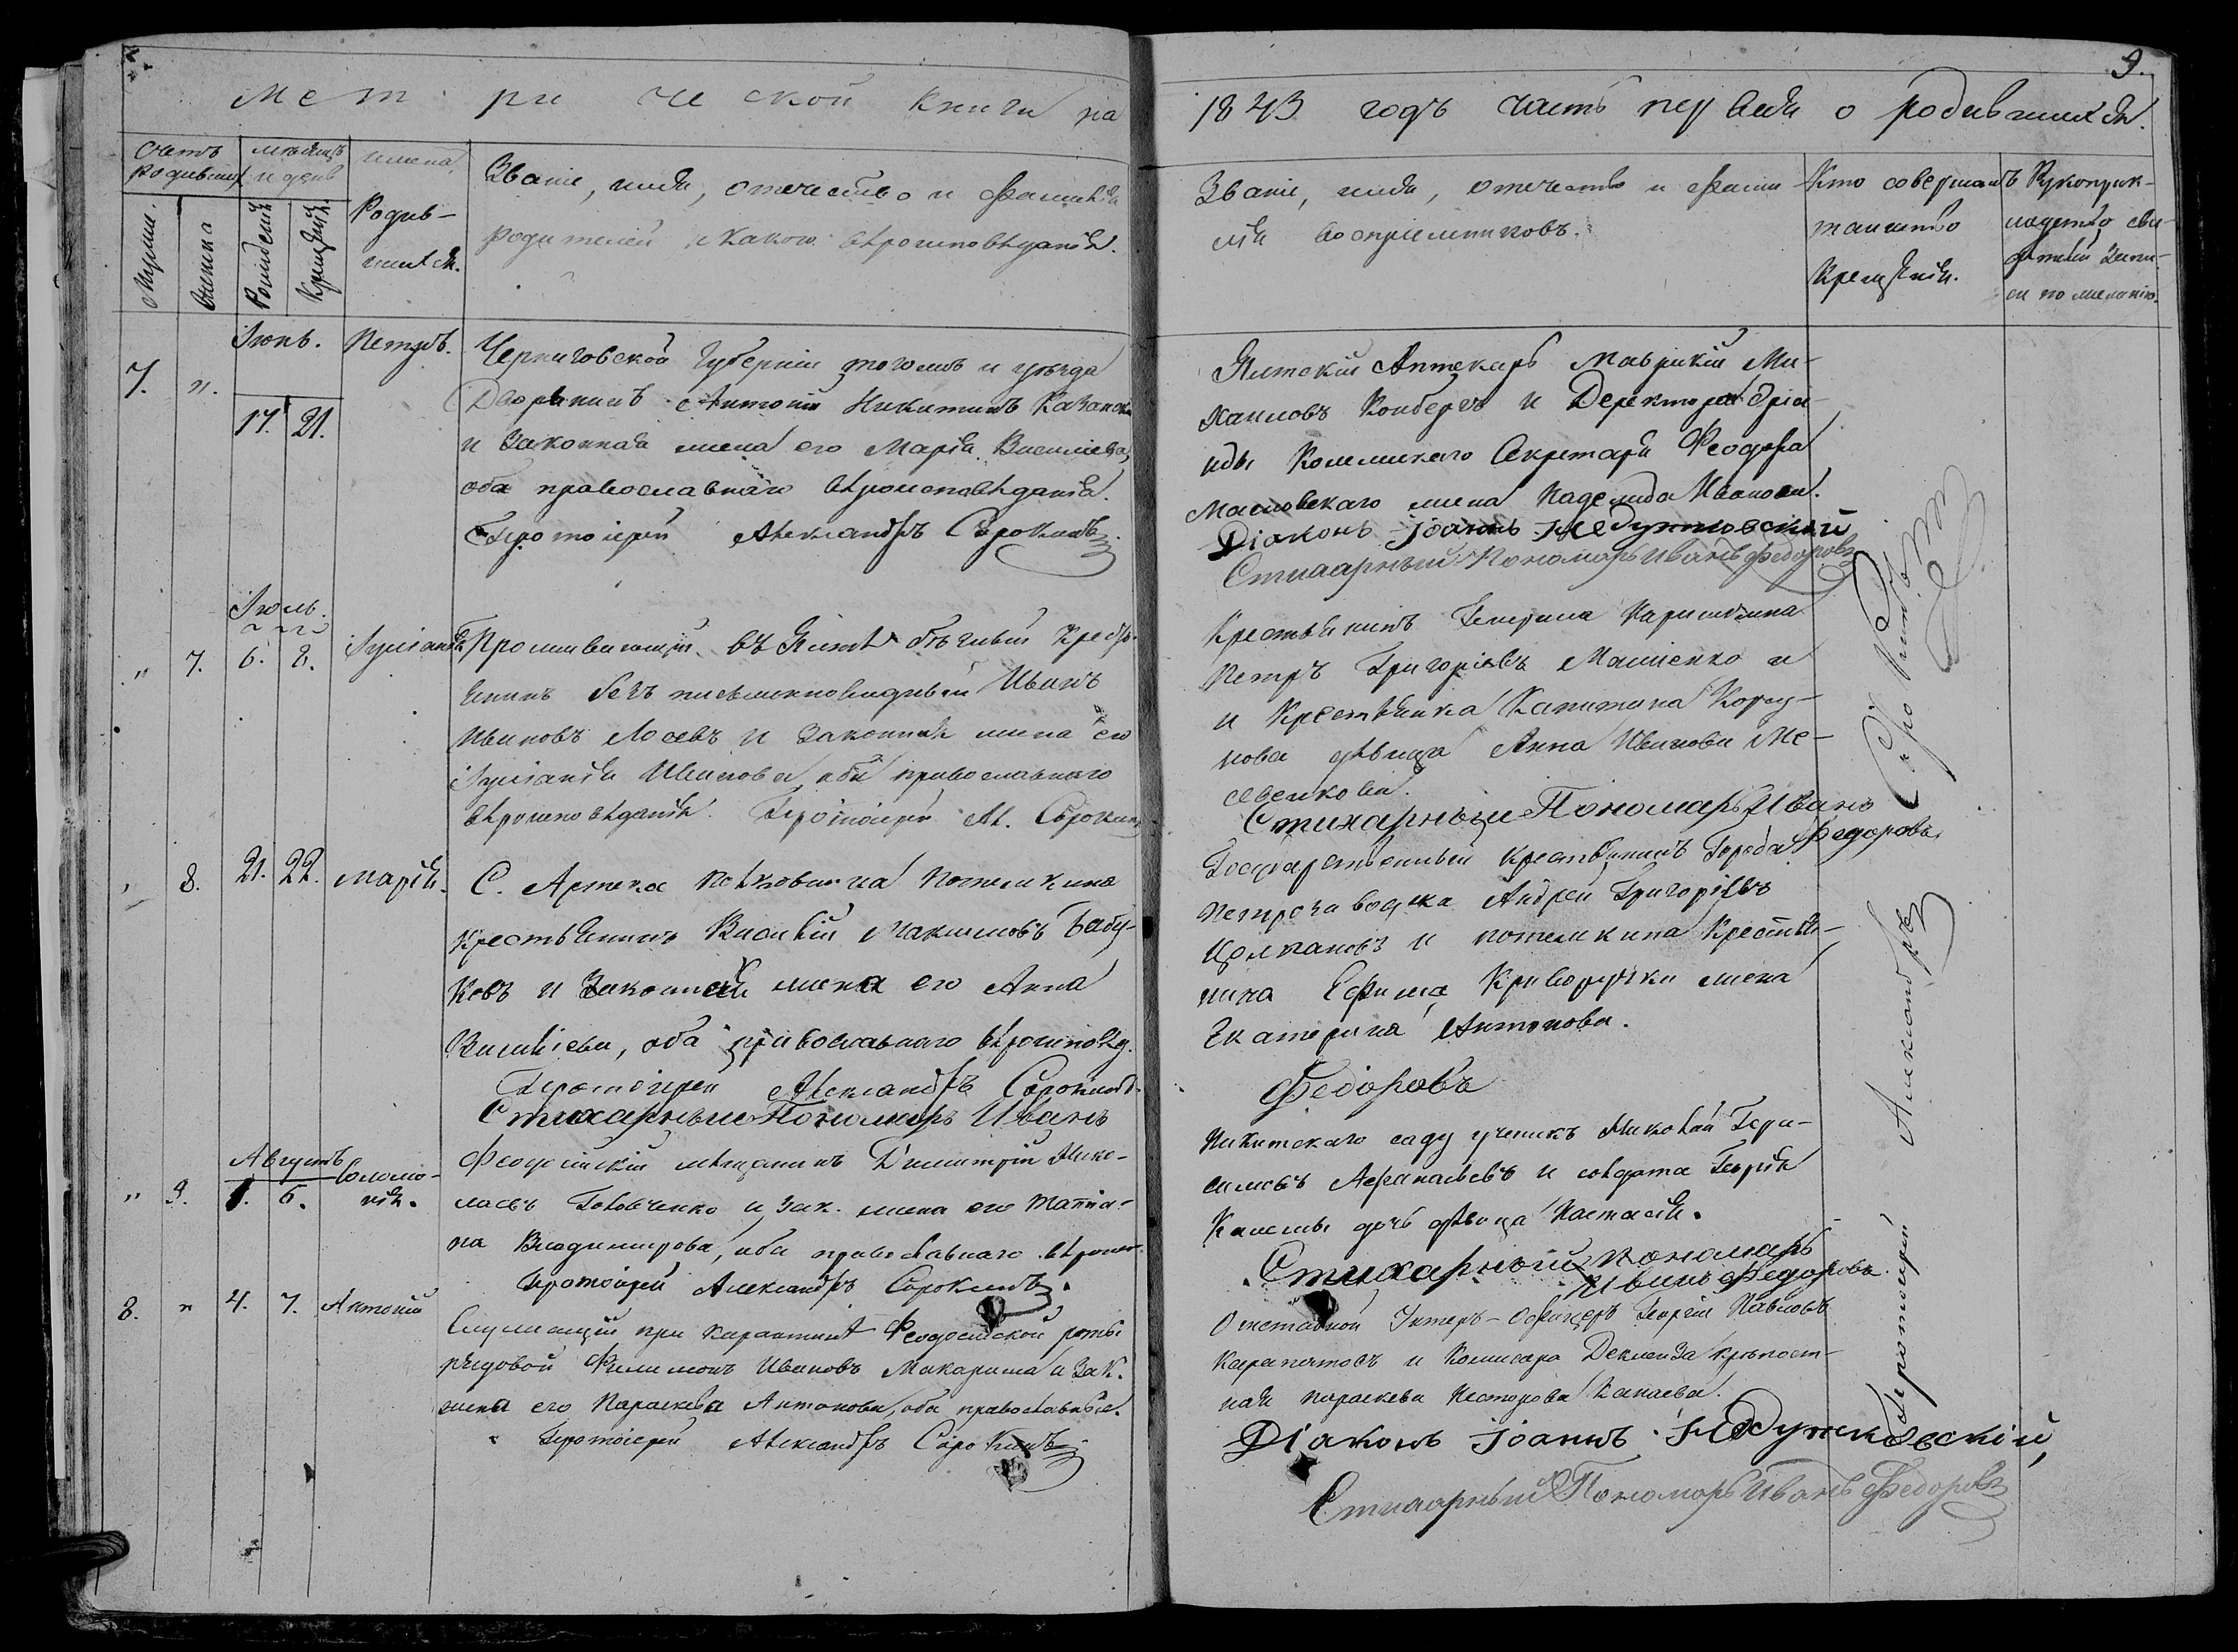 9.
Метрической книги на
1843 годъ часть первая о родившихся.
Счетъ родивших
мѣсяцъ и день
имена
Родив-
шихся.
Мужеска.
Женска
Рожденія
Крещенія.
Званіе, имя, отечество и фамилія
родителей, и какого вѣроисповѣданія.
Званіе, имя, отечество и фами-
лія воспріемниковъ.
Кто совершалъ
таинство
Крещенія.
Рукоприк-
ладство сви-
дѣтелей запи-
си по желанію.
Іюнь.
7. „ 17. 21. Петръ.
Черниговской Губерніи тогожъ и уѣзда
Дворянинъ Антоній Никитинъ
и законная жена его Марія Васильева,
оба православнаго вѣроисповѣданія.
Протоіерей Александръ Сорокинъ
Ялтскій Аптекарь Маврикій Ми-
хаиловъ и Деректора Оріа-
нды Колежскаго Секретаря Феодора
жена Надежда Иванова.
Діаконъ Іоаннъ
Стихарный Пономарь Иванъ Федоровъ
Іюль.
„ 7. 6. 8. Іуліанія
Проживающій въ Ялтѣ бѣглый Кресть-
янинъ безъ письменнаго Иванъ
Ивановъ Лосевъ и законная жена его
Іуліанія Иванова, оба православнаго
вѣроисповѣданія. Протоіерей Ал. Сорокинъ
Крестьянинъ Генерала Нарышкина
Петръ Григоріевъ и
и Крестьянка Капитана
дѣвица Анна Иванова
Стихарный Пономарь Иванъ
Федоровъ
8. 21. 22. Марія.
С. Артека Полковника Потемкина
Крестьянинъ Василій Максимовъ Бабу-
ковъ и Законная жена его Анна
Василіева, оба православнаго вѣроисповѣд.
Протоіерей Александръ Сорокинъ.
Стихарный Пономарь Иванъ
Государственный Крестьянинъ Города
Петрозаводска Андрей Григоріевъ
и Потемкина Крестья-
нина Ефима Криворучки жена
Екатерина Антонова.
Федоровъ
Августъ
„ 9. 1. 6. Соломо-
нія.
Феодосійскій мѣщанинъ Димитрій Нико-
лаевъ Головченко и зак. жена его Татіа-
на Владимирова, оба православнаго вѣроис.
Протоіерей Александръ Сорокинъ.
Никитскаго саду ученикъ Николай Гера-
симовъ Афанасьевъ и солдата Георгія
дочь дѣвица Настасія.
Стихарный пономарь
Иванъ Федоровъ
8. „ 4. 7. Антоній
Служащій при карантинѣ Феодосійской роты
рядовой Филимонъ Ивановъ и зак.
жена его Параскева Антонова, оба православные.
Протоіерей Александръ Сорокинъ
Отставной Унтеръ-Офицеръ Георгій Павловъ
и Комисара крѣпост-
ная Параскева Несторова Канаева.
Діаконъ Іоаннъ
Стихарный Пономарь Иванъ Федоровъ
Протоіерей Александръ Сорокинъ